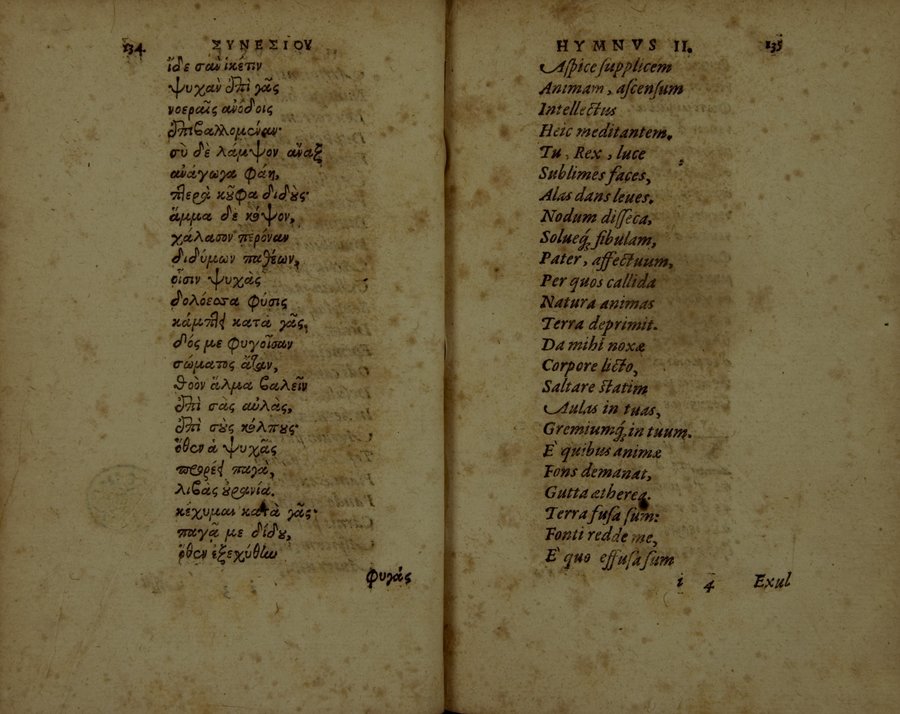 134 ΣΥΝΕΣΙΟΥ
ἴδε σὰν ἱκέτιν
ψυχὰν ἐπὶ γᾶς
νοεραῖς ἀνόδοις
ἐπιβαλλομέναν·
σὺ δὲ λάμψον ἄναξ
ἀνάγωγα φάη,
πτερὰ κοῦφα διδούς·
ἅμμα δὲ κόψον,
χάλασον περόναν
διδύμων παθέων,
οἷσιν ψυχὰς
δολόεσσα φύσις
κάμπτει κατὰ γᾶς,
δός με φυγοῖσαν
σώματος ἄταν,
θοὸν ἅλμα βαλεῖν
ἐπὶ σὰς αὐλὰς,
ἐπὶ σοὺς κόλπους·
ὅθεν ἁ ψυχᾶς
προρέει παγὰ,
λιβὰς οὐρανία.
κέχυμαι κατὰ γᾶς·
παγᾷ με δίδου,
ὅθεν ἐξεχύθην
φυγάς
HYMNVS II. 135
Aspice supplicem
Animam, ascensum
Intellectus
Heic meditantem.
Tu, Rex, luce
Sublimes faces,
Alas dans leues.
Nodum disseca,
Solueq; fibulam,
Pater, affectuum,
Per quos callida
Natura animas
Terra deprimit.
Da mihi noxæ
Corpore licto,
Saltare statim
Aulas in tuas,
Gremiumq; in tuum.
E' quibus animæ
Fons demanat,
Gutta ætherea.
Terra fusa sum:
Fonti redde me,
E' quo effusa sum
i 4 Exul